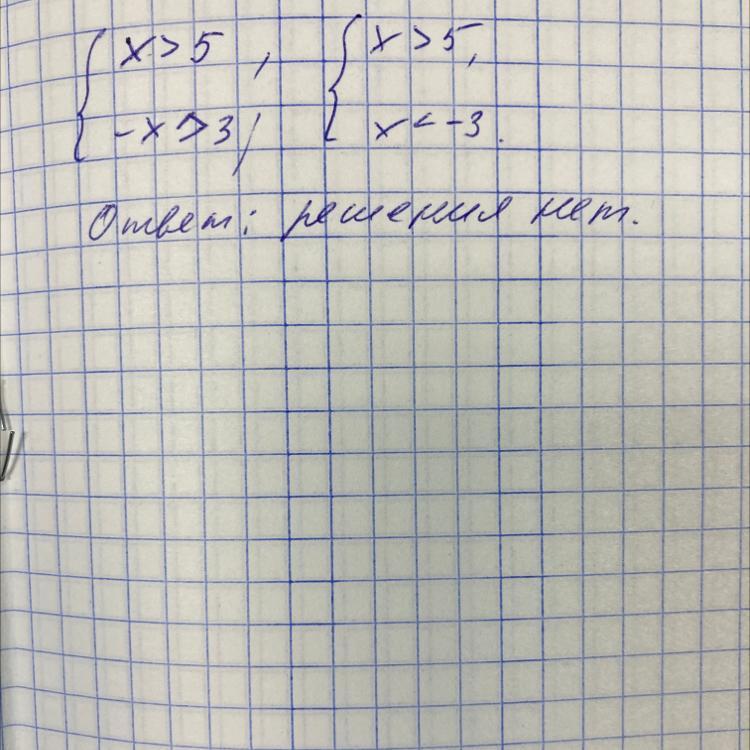 { x > 5 , { x > 5,
-x > 3, x < -3.
Ответ: решения нет.